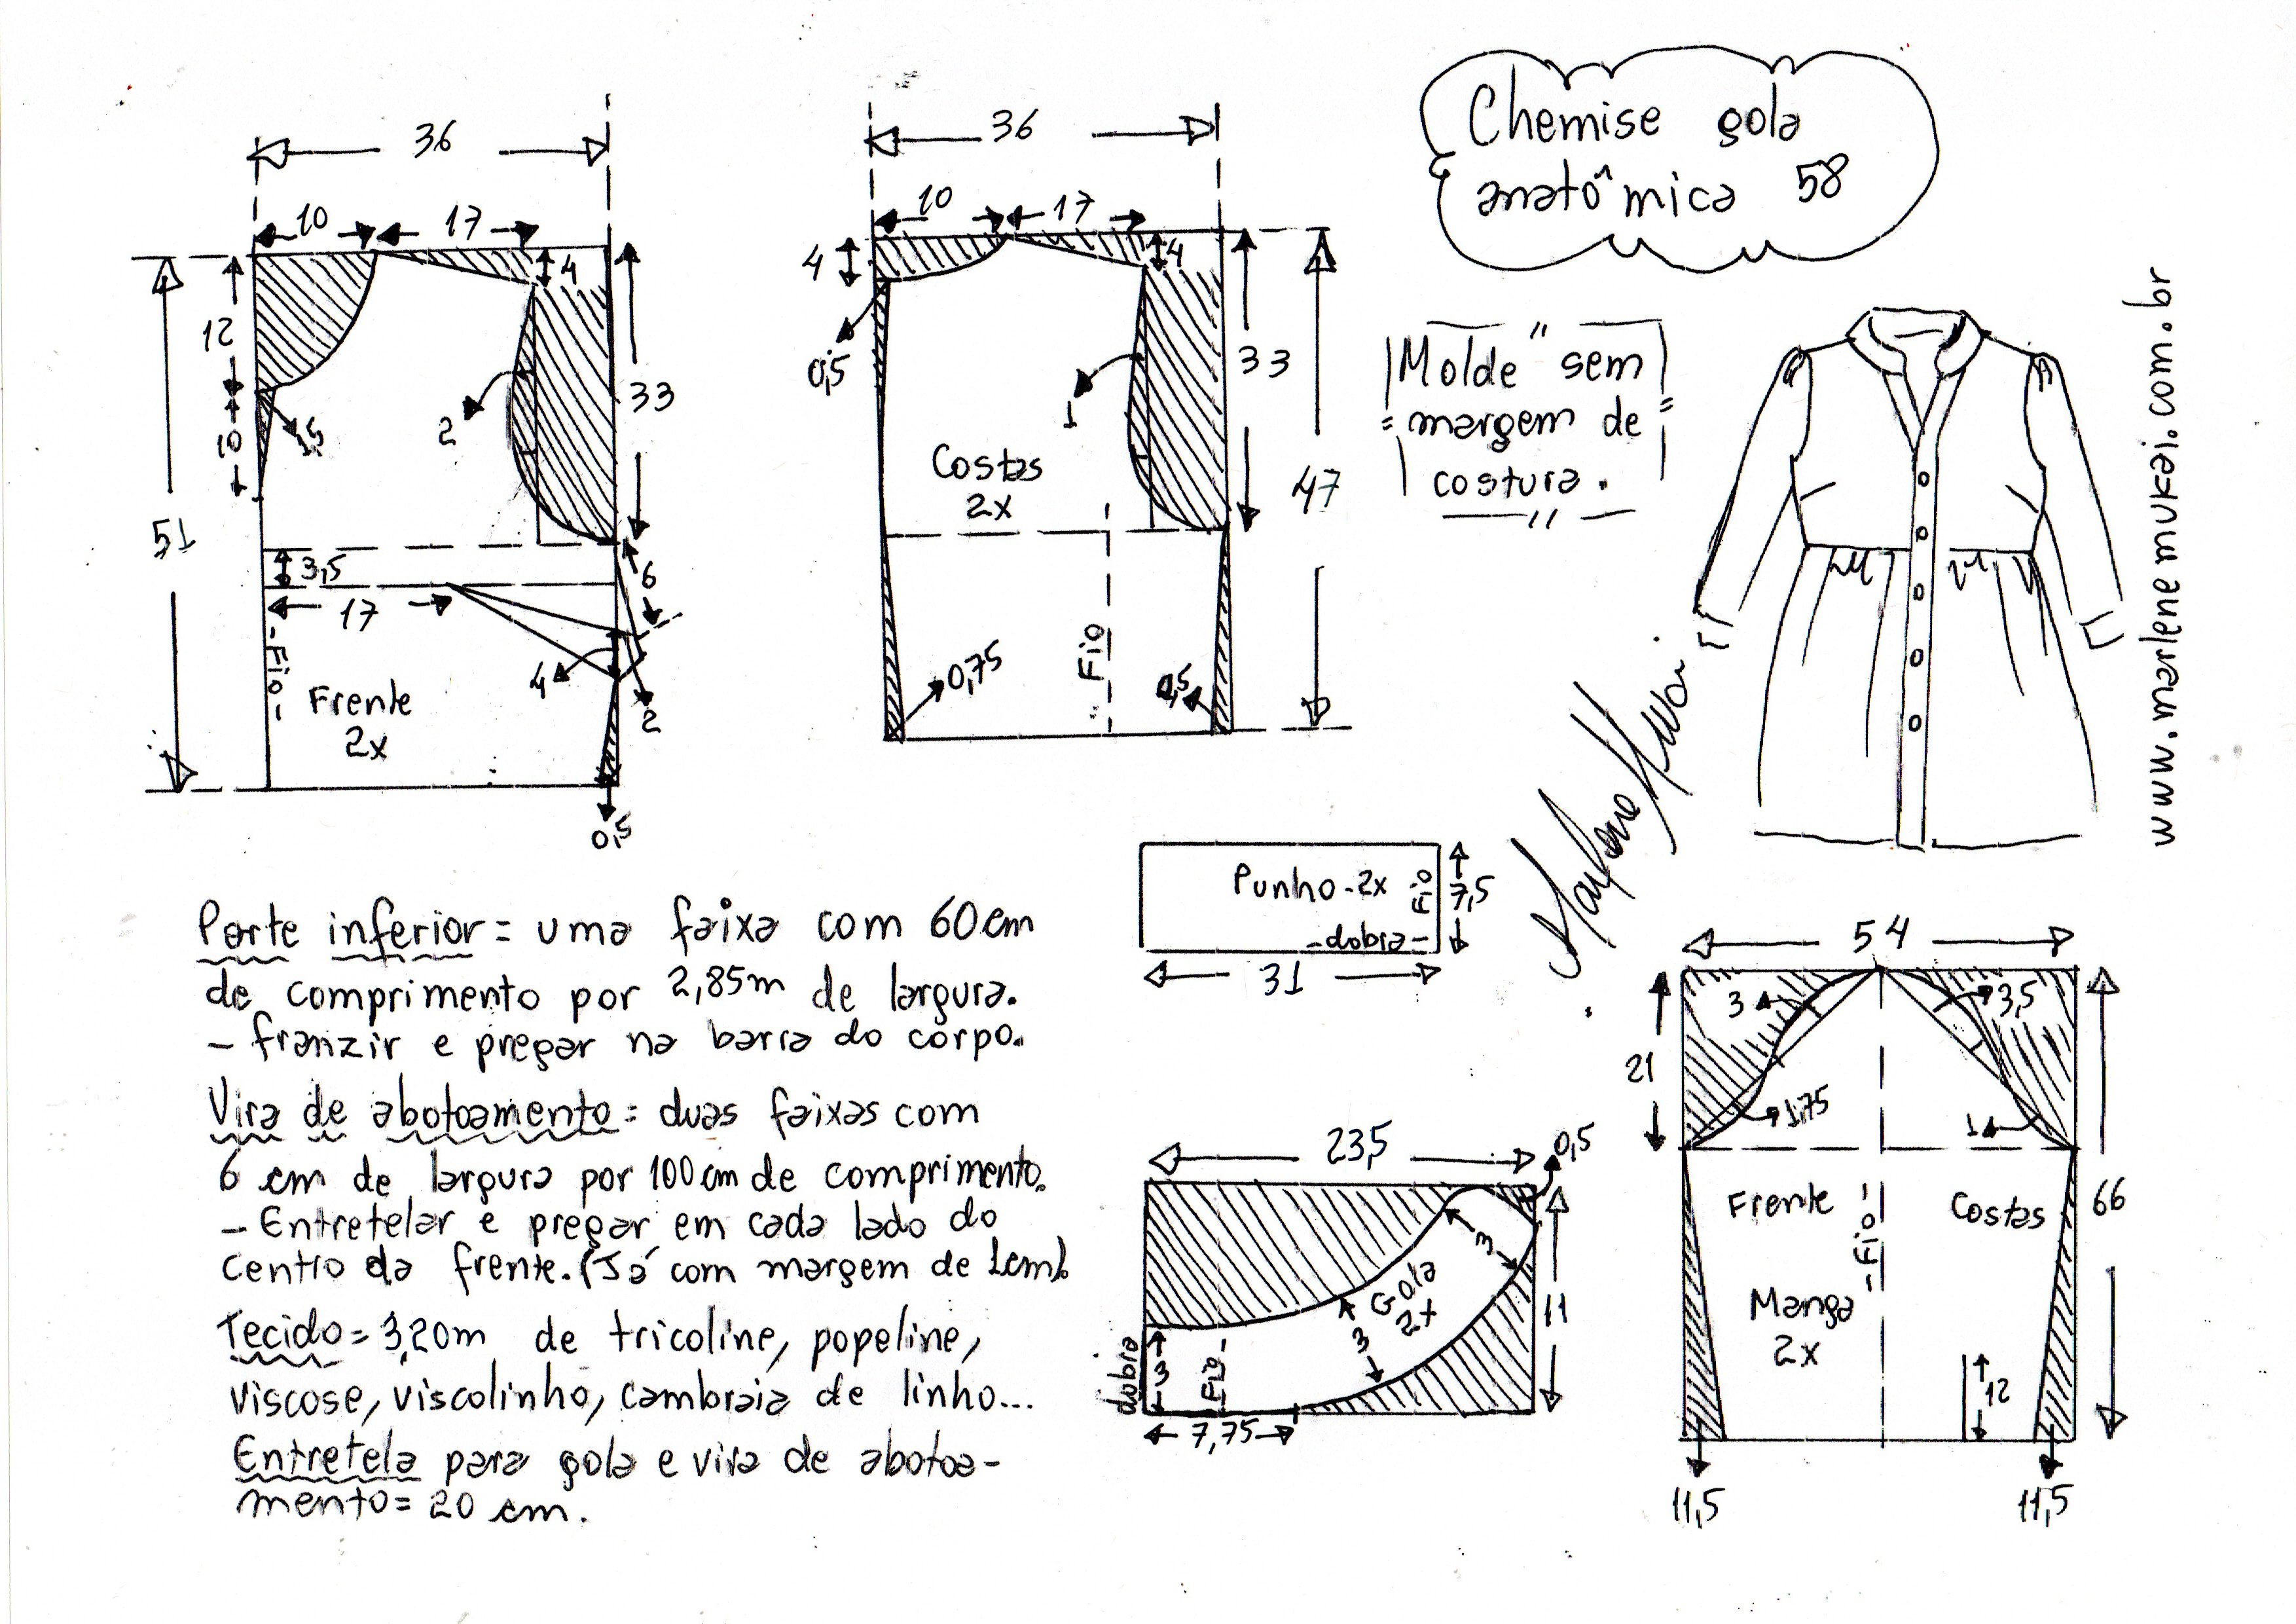 Chemise gola
anatômica 58
"Molde" sem
margem de
costura.
www.marlenemukai.com.br
36
10
17
4
12
10
1,5
2
33
51
3,5
17
6
4
2
0,5
-Fio-
Frente
2x
36
10
17
4
4
0,5
1
33
47
Costas
2x
Fio
0,75
0,5
Parte inferior = uma faixa com 60 cm
de comprimento por 2,85m de largura.
- franzir e pregar na barra do corpo.
Vira de abotoamento = duas faixas com
6 cm de largura por 100 cm de comprimento.
- Entretelar e pregar em cada lado do
centro da frente. (Já com margem de 1cm).
Tecido = 3,20m de tricoline, popeline,
viscose, viscolinho, cambraia de linho...
Entretela para gola e vira de abotoa-
mento = 20 cm.
Punho - 2x
Fio
7,5
-dobra-
31
23,5
0,5
3
Gola
2x
3
11
dobra
3
Fio-
7,75
54
3
3,5
21
1,75
1
Frente
-Fio-
Costas
66
Manga
2x
12
11,5
11,5